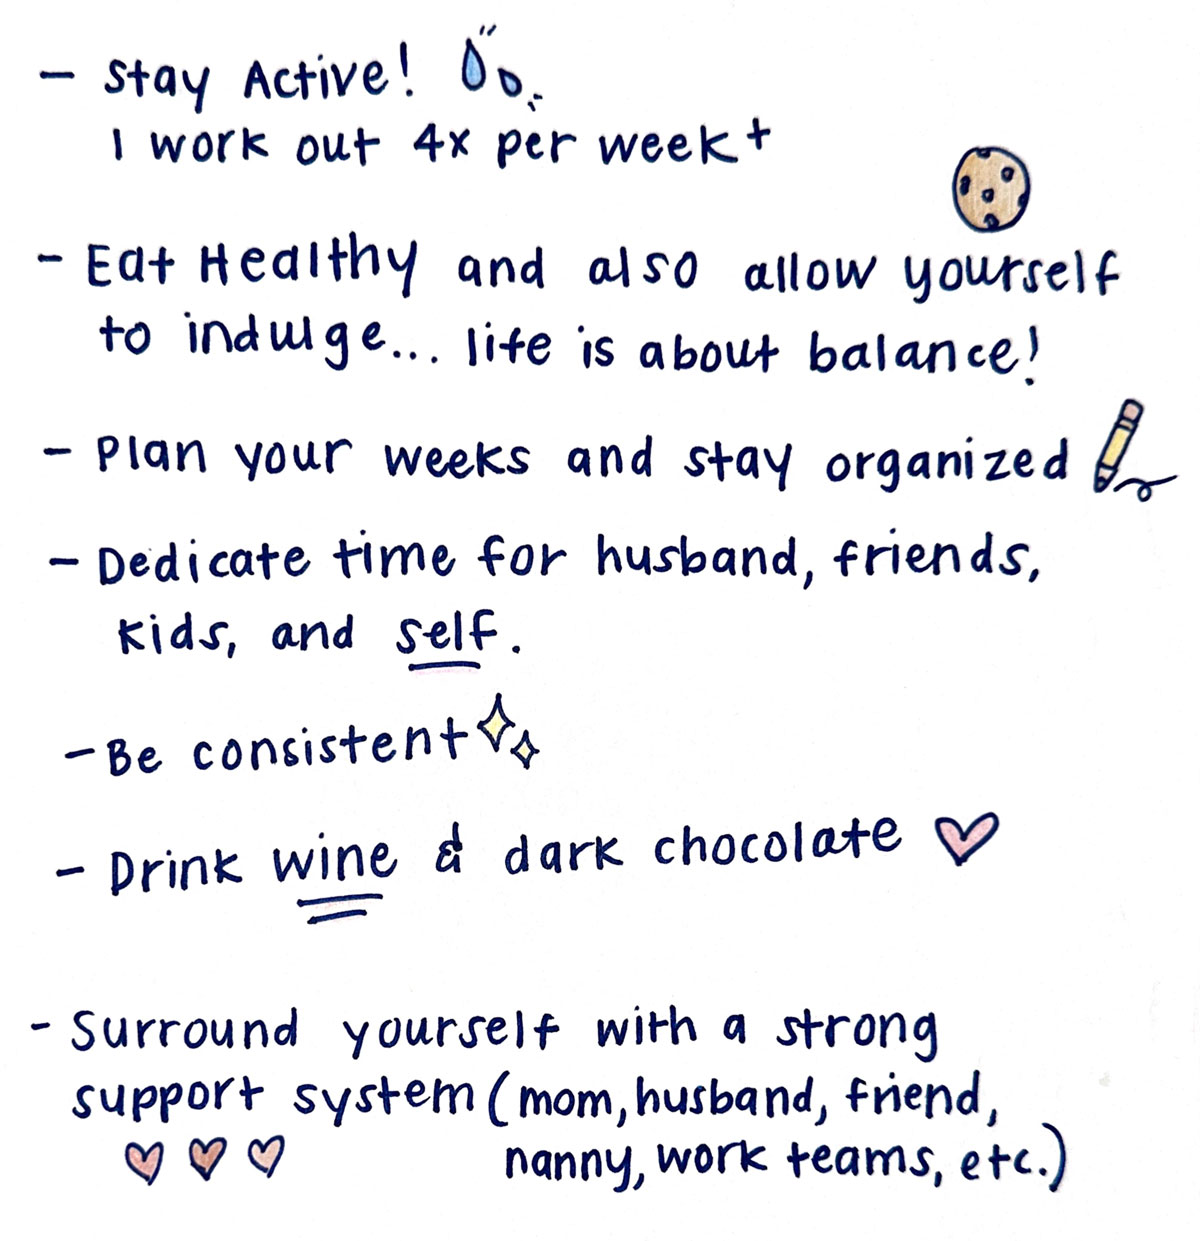 - Stay Active!
I work out 4x per week+
- Eat Healthy and also allow yourself
to indulge... life is about balance!
- Plan your weeks and stay organized
- Dedicate time for husband, friends,
kids, and self.
- Be consistent
- Drink wine & dark chocolate
- Surround yourself with a strong
support system (mom, husband, friend,
nanny, work teams, etc.)